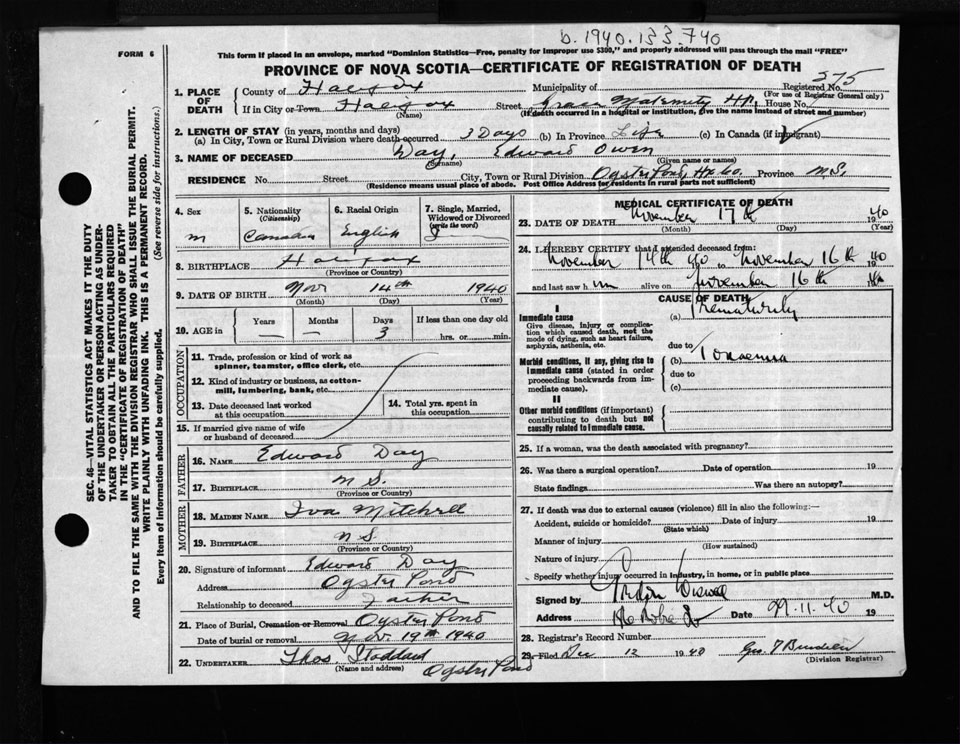 b. 1940.133.740
FORM 6
This form if placed in an envelope, marked "Dominion Statistics—Free, penalty for improper use $300," and properly addressed will pass through the mail "FREE"
PROVINCE OF NOVA SCOTIA—CERTIFICATE OF REGISTRATION OF DEATH
Registered No. 575
(For use of Registrar General only)
1. PLACE OF DEATH
County of Halifax
Municipality of
If in City or Town Halifax
(Name)
Street Grace Maternity House No.
(If death occurred in a hospital or institution, give the name instead of street and number)
2. LENGTH OF STAY (in years, months and days)
(a) In City, Town or Rural Division where death occurred 3 Days (b) In Province Life (c) In Canada (if immigrant)
3. NAME OF DECEASED Day, Edward Owen
(Surname) (Given name or names)
RESIDENCE No. Street City, Town or Rural Division Oyster Pond, Hx Co. Province N.S.
(Residence means usual place of abode. Post Office Address for residents in rural parts not sufficient)
4. Sex
m
5. Nationality
(Citizenship)
Canadian
6. Racial Origin
English
7. Single, Married, Widowed or Divorced
(write the word)
S
8. BIRTHPLACE Halifax
(Province or Country)
9. DATE OF BIRTH Nov 14th 1940
(Month) (Day) (Year)
10. AGE in
Years Months Days If less than one day old
— 3 hrs. or min.
OCCUPATION
11. Trade, profession or kind of work as spinner, teamster, office clerk, etc.
12. Kind of industry or business, as cotton-mill, lumbering, bank, etc.
13. Date deceased last worked at this occupation
14. Total yrs. spent in this occupation
15. If married give name of wife or husband of deceased
FATHER
16. NAME Edward Day
17. BIRTHPLACE N S.
(Province or Country)
MOTHER
18. MAIDEN NAME Iva Mitchell
19. BIRTHPLACE N S.
(Province or Country)
20. Signature of informant Edward Day
Address Oyster Pond
Relationship to deceased Father
21. Place of Burial, Cremation or Removal Oyster Pond
Date of burial or removal Nov. 19th 1940
22. UNDERTAKER Thos. Stoddard
(Name and address) Oyster Pond
MEDICAL CERTIFICATE OF DEATH
23. DATE OF DEATH November 17th 1940
(Month) (Day) (Year)
24. I HEREBY CERTIFY that I attended deceased from:
November 14th 40 to November 16th 1940
and last saw him alive on November 16th 1940
CAUSE OF DEATH
I
Immediate cause
Give disease, injury or complication which caused death, not the mode of dying, such as heart failure, asphyxia, asthenia, etc.
(a) Prematurity
due to
Morbid conditions, if any, giving rise to immediate cause (stated in order proceeding backwards from immediate cause).
(b) Toxaemia
due to
(c)
II
Other morbid conditions (if important) contributing to death but not causally related to immediate cause.
25. If a woman, was the death associated with pregnancy?
26. Was there a surgical operation? Date of operation 19
State findings Was there an autopsy?
27. If death was due to external causes (violence) fill in also the following:—
Accident, suicide or homicide? Date of injury 19
(State which)
Manner of injury
(How sustained)
Nature of injury
Specify whether injury occurred in industry, in home, or in public place
Signed by Gordon Wiswell M.D.
Address Date 29.11.40 19
28. Registrar's Record Number
29. Filed Dec 12 1940 Geo.
(Division Registrar)
SEC. 46—VITAL STATISTICS ACT MAKES IT THE DUTY
OF THE UNDERTAKER OR PERSON ACTING AS UNDER-
TAKER TO OBTAIN ALL THE PARTICULARS REQUIRED
IN THE "CERTIFICATE OF REGISTRATION OF DEATH"
AND TO FILE THE SAME WITH THE DIVISION REGISTRAR WHO SHALL ISSUE THE BURIAL PERMIT.
WRITE PLAINLY WITH UNFADING INK. THIS IS A PERMANENT RECORD.
Every item of information should be carefully supplied. (See reverse side for instructions.)